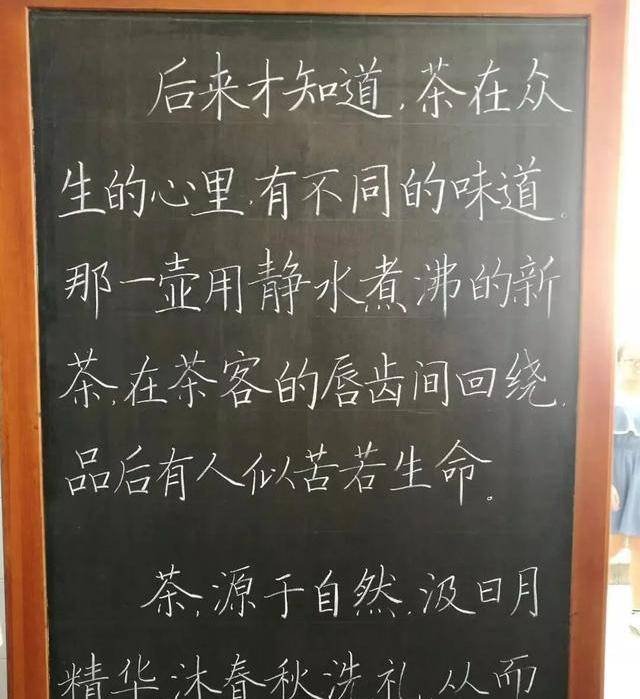 后来才知道，茶在众
生的心里，有不同的味道。
那一壶用静水煮沸的新
茶，在茶客的唇齿间回绕，
品后有人似苦若生命。
茶，源于自然，汲日月
精华，沐春秋洗礼，从而